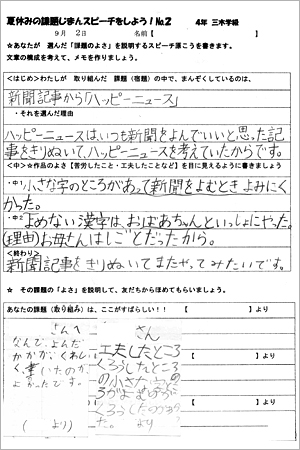 夏休みの課題じまんスピーチをしよう!No.2　4年 三木学級
9月 2日　名前【　】
☆あなたが 選んだ「課題のよさ」を説明するスピーチ原こうを書きます。
文章の構成を考えて、メモを作りましょう。
<はじめ>わたしが 取り組んだ 課題(宿題)の中で、まんぞくしているのは、
新聞記事から「ハッピーニュース」
・それを選んだ理由
ハッピーニュースは、いつも新聞をよんでいいと思った記
事をきりぬいて、ハッピーニュースを考えていたからです。
<中>☆作品のよさ【苦労したこと・工夫したことなど】を目に見えるように書きましょう
・中1 小さな字のところがあって新聞をよむときよみにく
かった。
・中2 よめない漢字は、おばあちゃんといっしょにやった。
(理由)お母さんはしごとだったから。
<終わり>
新聞記事をきりぬいてまたやってみたいです。
☆ その課題の「よさ」を説明して、友だちからほめてもらいましょう。
あなたの課題(取り組み)は、ここがすばらしい!!【　】より
さんへ
なんで、よんだ
かがが、くわし
く、書いたのが、
よかったです。
(　より)
さん
工夫したところ
くろうしたところ
の小さな字の
ろがよむのが
くろうしたの
より
【　】より
【　】より